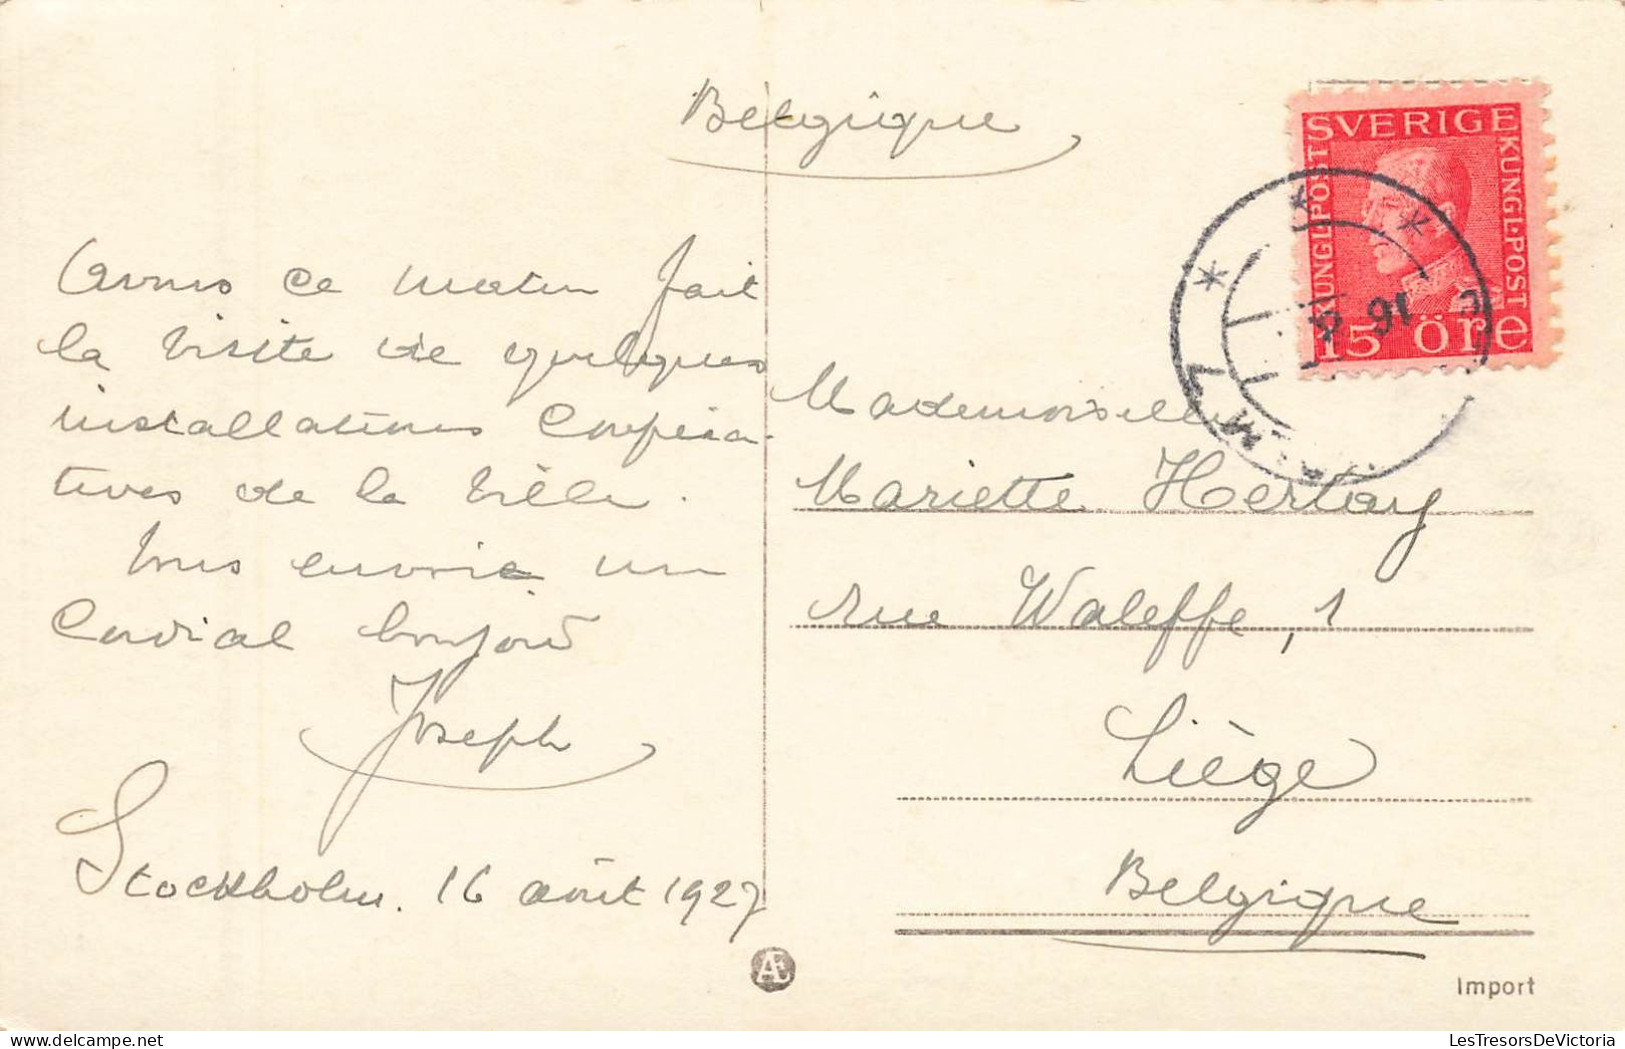 Belgique
Avons ce matin fait
la visite de quelques
installations coopéra-
tives de la ville.
Vous envoie un
Cordial bonjour
Joseph
Stockholm. 16 août 1927
SVERIGE
KUNGL. POST
KUNGL. POST
15 öre
16 8
Mademoiselle
Mariette Hertay
rue Waleffe, 1
Liège
Belgique
Import
LesTresorsDeVictoria